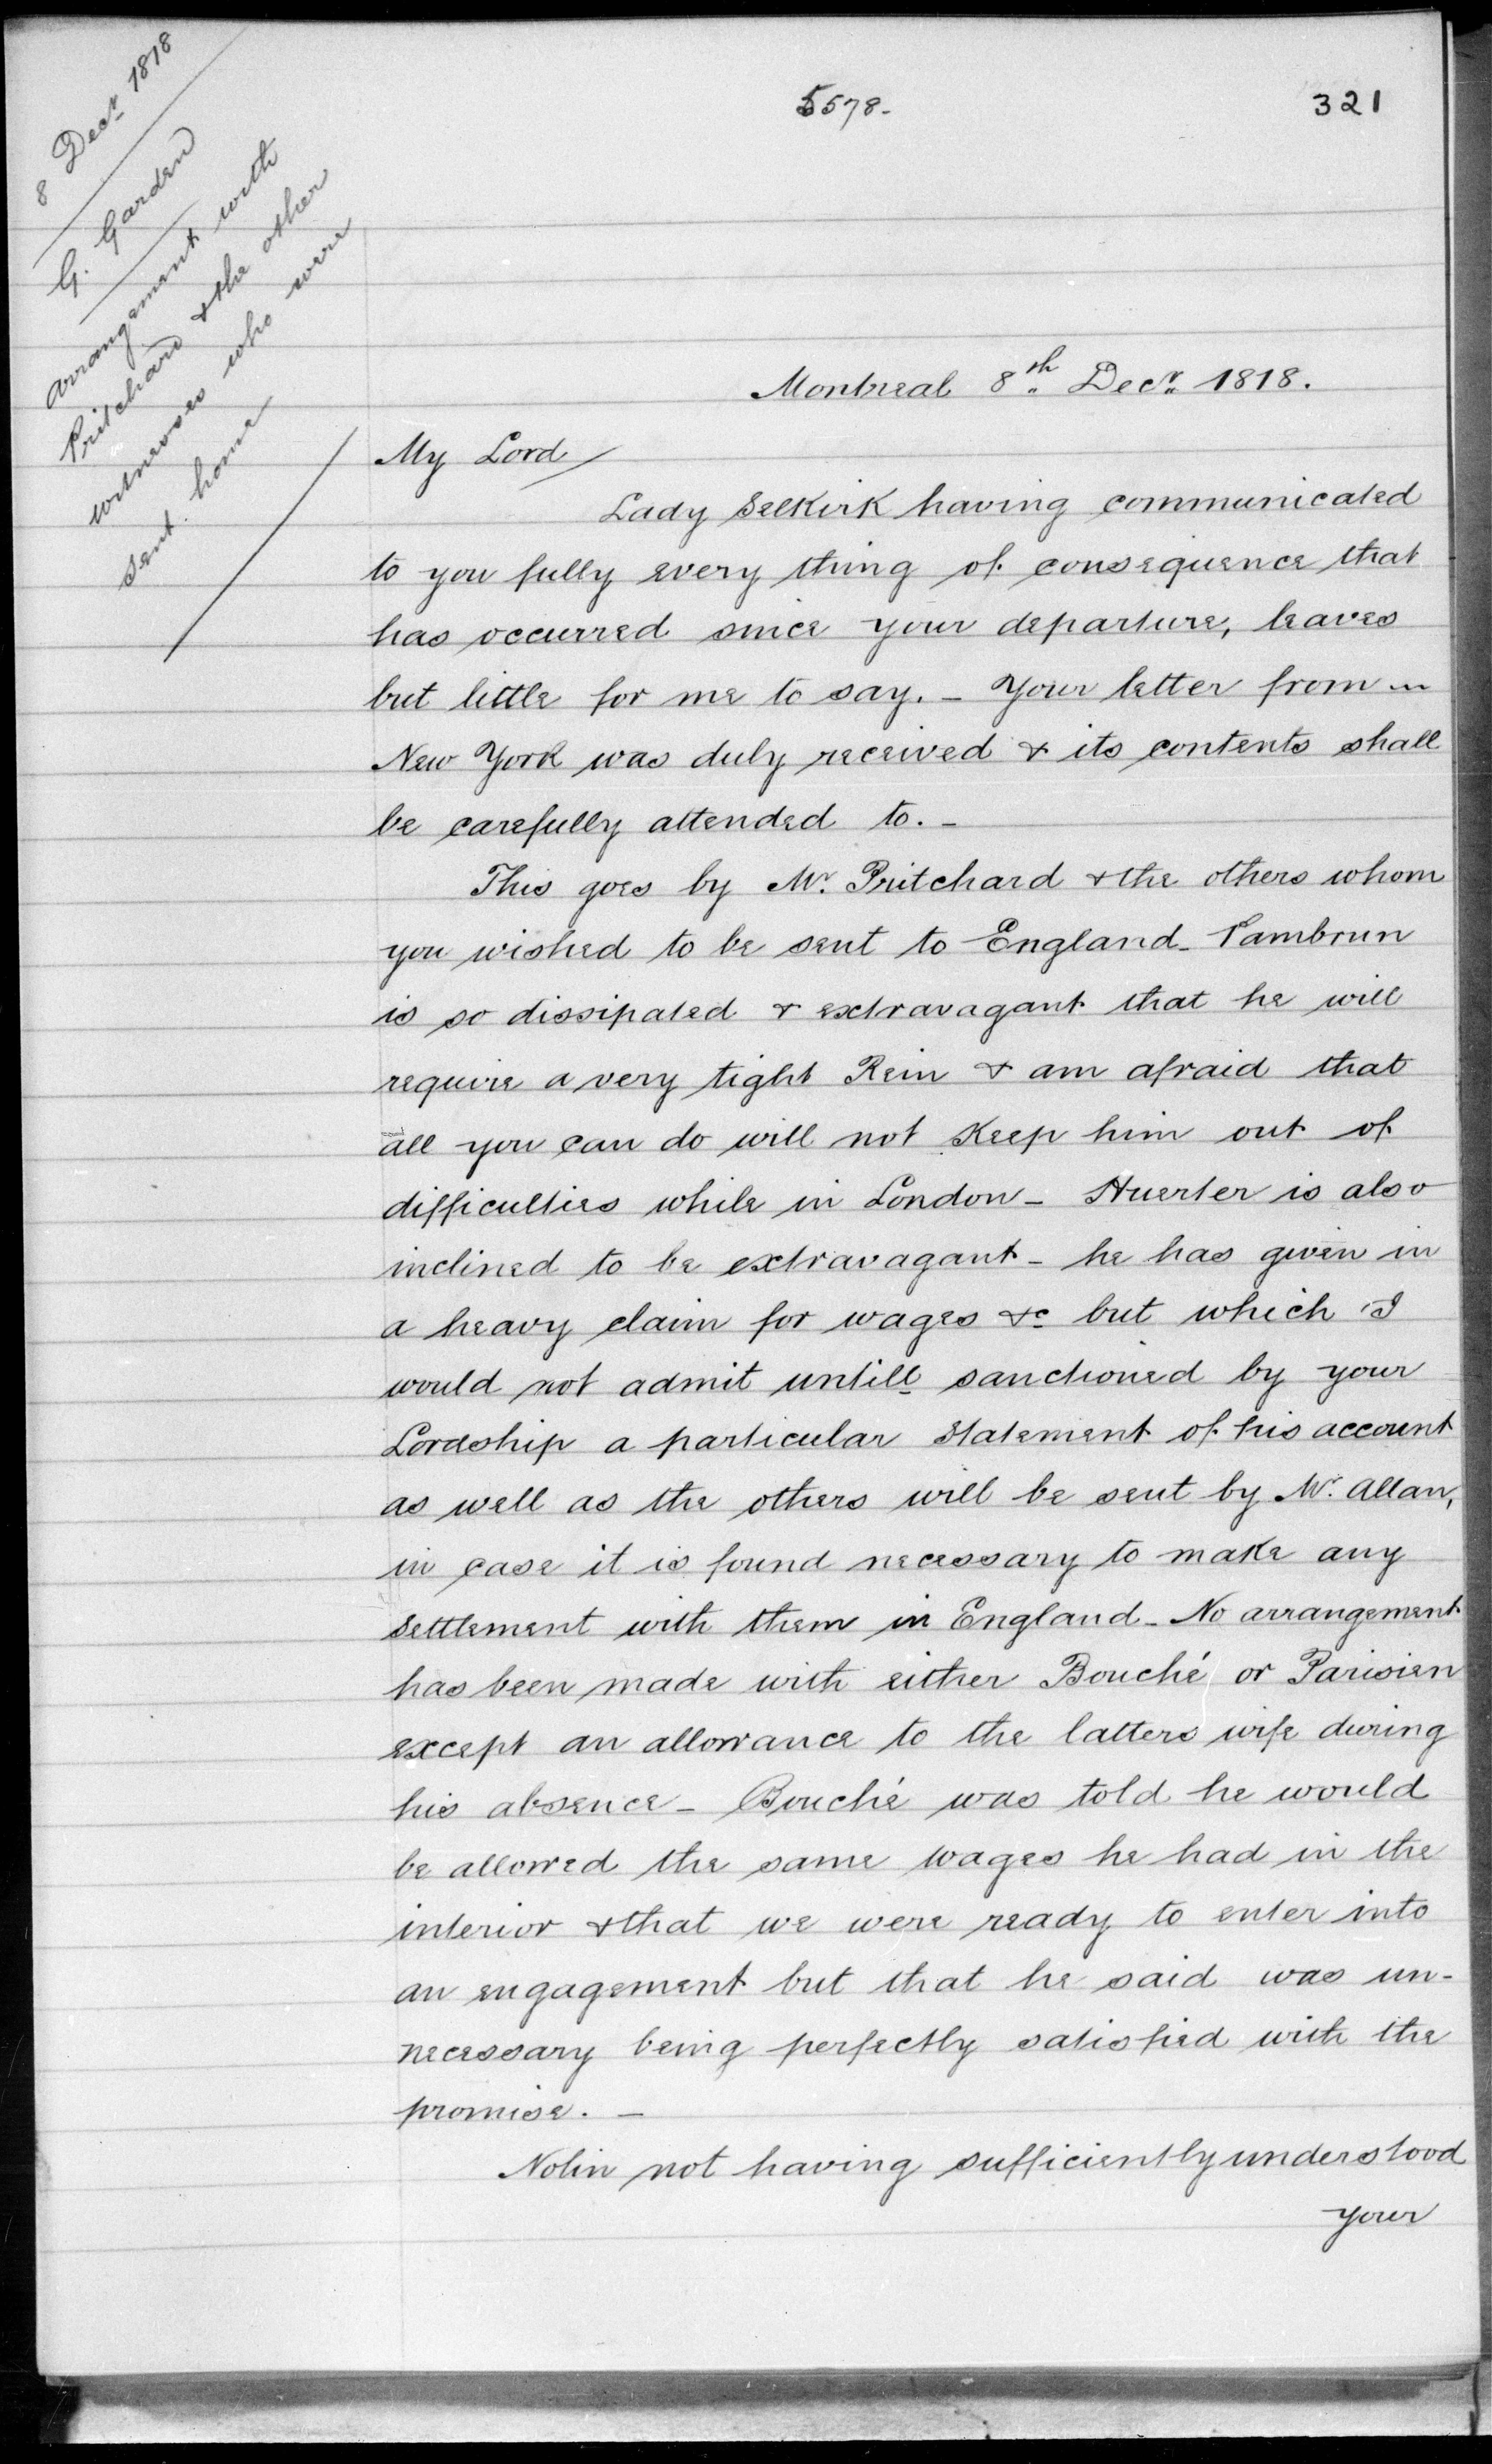 5578-
321
8 Decr 1818
G. Garden
Arrangement with
Pritchard & the other
witnesses who were
sent home
Montreal 8th Decr 1818.
My Lord
Lady Selkirk having communicated
to you fully every thing of consequence that
has occurred since your departure, leaves
but little for me to say. - Your letter from
New York was duly received & its contents shall
be carefully attended to. -
This goes by Mr. Pritchard & the others whom
you wished to be sent to England - Pambrun
is so dissipated & extravagant that he will
require a very tight Rein & am afraid that
all you can do will not Keep him out of
difficulties while in London - Huerter is also
inclined to be extravagant - he has given in
a heavy claim for wages &c but which I
would not admit untill sanctioned by your
Lordship a particular Statement of his account
as well as the others will be sent by Mr. Allan,
in case it is found necessary to make any
Settlement with them in England - No arrangement
has been made with either Bouché or Parisien
except an allowance to the latters wife during
his absence - Bouché was told he would
be allowed the same wages he had in the
interior & that we were ready to enter into
an engagement but that he said was un-
necessary being perfectly satisfied with the
promise. -
Nolin not having sufficiently understood
your